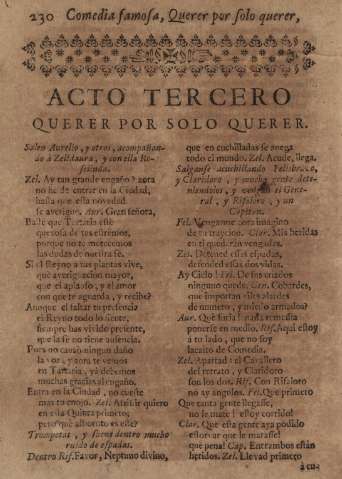 230 Comedia famosa, Querer por solo querer,
ACTO TERCERO
QUERER POR SOLO QUERER.
Salen Aurelio, y otros, acompañan-
do à Zelidaura, y con ella Ro-
selinda.
Zel. Ay tan grande engaño? aora
no ha de entrar en la Ciudad,
hasta que esta novedad
se averigue. Aur. Gran señora,
que Tartaria esté
quexosa de tus estremos,
porque no te merecemos
las dudas de nuestra fe.
Si el Reyno a tus plantas vive,
què averiguacion mayor,
que el aplauso, y el amor
con que te aguarda, y recibe?
Aunque el faltar tu presencia
el Reyno todo lo siente,
siempre has vivido presente,
que la fe no tiene ausencia.
Pues no causò ningun daño
la voz, y aora te vemos
en Tartaria, yà debemos
muchas gracias al engaño.
Entra en la Ciudad, no cueste
mas tu enojo. Zel. Assistir quiero
en esta Quinta primero;
pero què alboroto es este?
Trompetas, y suene dentro mucho
ruido de espadas.
Dentro Rif. Favor, Neptuno divino,
que en cuchilladas se anega
todo el mundo. Zel. Acude, llega.
Salganse acuchillando Felisbravo,
y Claridoro, y mucha gente dete-
niendolos, y el Gene-
ral, y Rifaloro, y un
Capitan.
Fel. Vengarme imagino
de tu traycion. Clar. Mis heridas
en ti quedaràn vengadas.
Zel. Detened essas espadas,
defended essas dos vidas.
Ay Cielo! Fel. De sus criados
ninguno quede. Gen. Cobardes,
que importan viles alardes
de numero, y no armados?
Aur. Que furia! nadie
ponerse en medio. Rif. Aqui estoy
à tu lado, que no soy
lacayo de Comedia.
Zel. Apartad; el Cavallero
del retrato, y Claridoro
son los dos. Rif. Con Rifaloro
no ay angeles. Fel. Que primero
Que tanta gente llegasse,
no le matè! estoy corrido!
Clar. Que esta gente aya podido
estorvar que le matasse!
què pena! Cap. Entrambos estàn
heridos. Zel. Llevad primero
à cu-